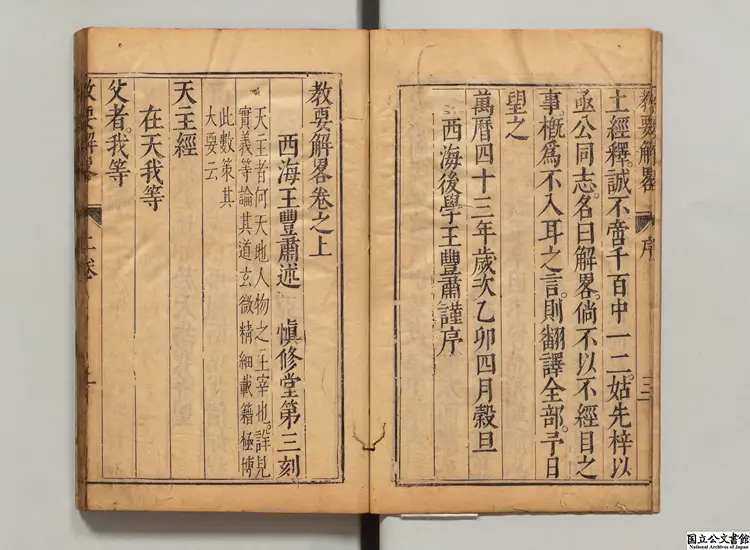 教要解畧 序 三
土經釋。誠不啻千百中一二。姑先梓以
亟公同志。名曰解畧。倘不以不經目之
事。槪爲不入耳之言。則翻譯全部。予日
望之
萬曆四十三年歲次乙卯四月穀旦
西海後學王豐肅謹序
教要解畧卷之上
西海王豐肅述 愼修堂第三刻
天主者何天地人物之主宰也。詳見
實義等論其道玄微精細載籍極博
此數策其
大要云
天主經
在天我等
父者。我等
教要解畧 上卷 一
国立公文書館
National Archives of Japan